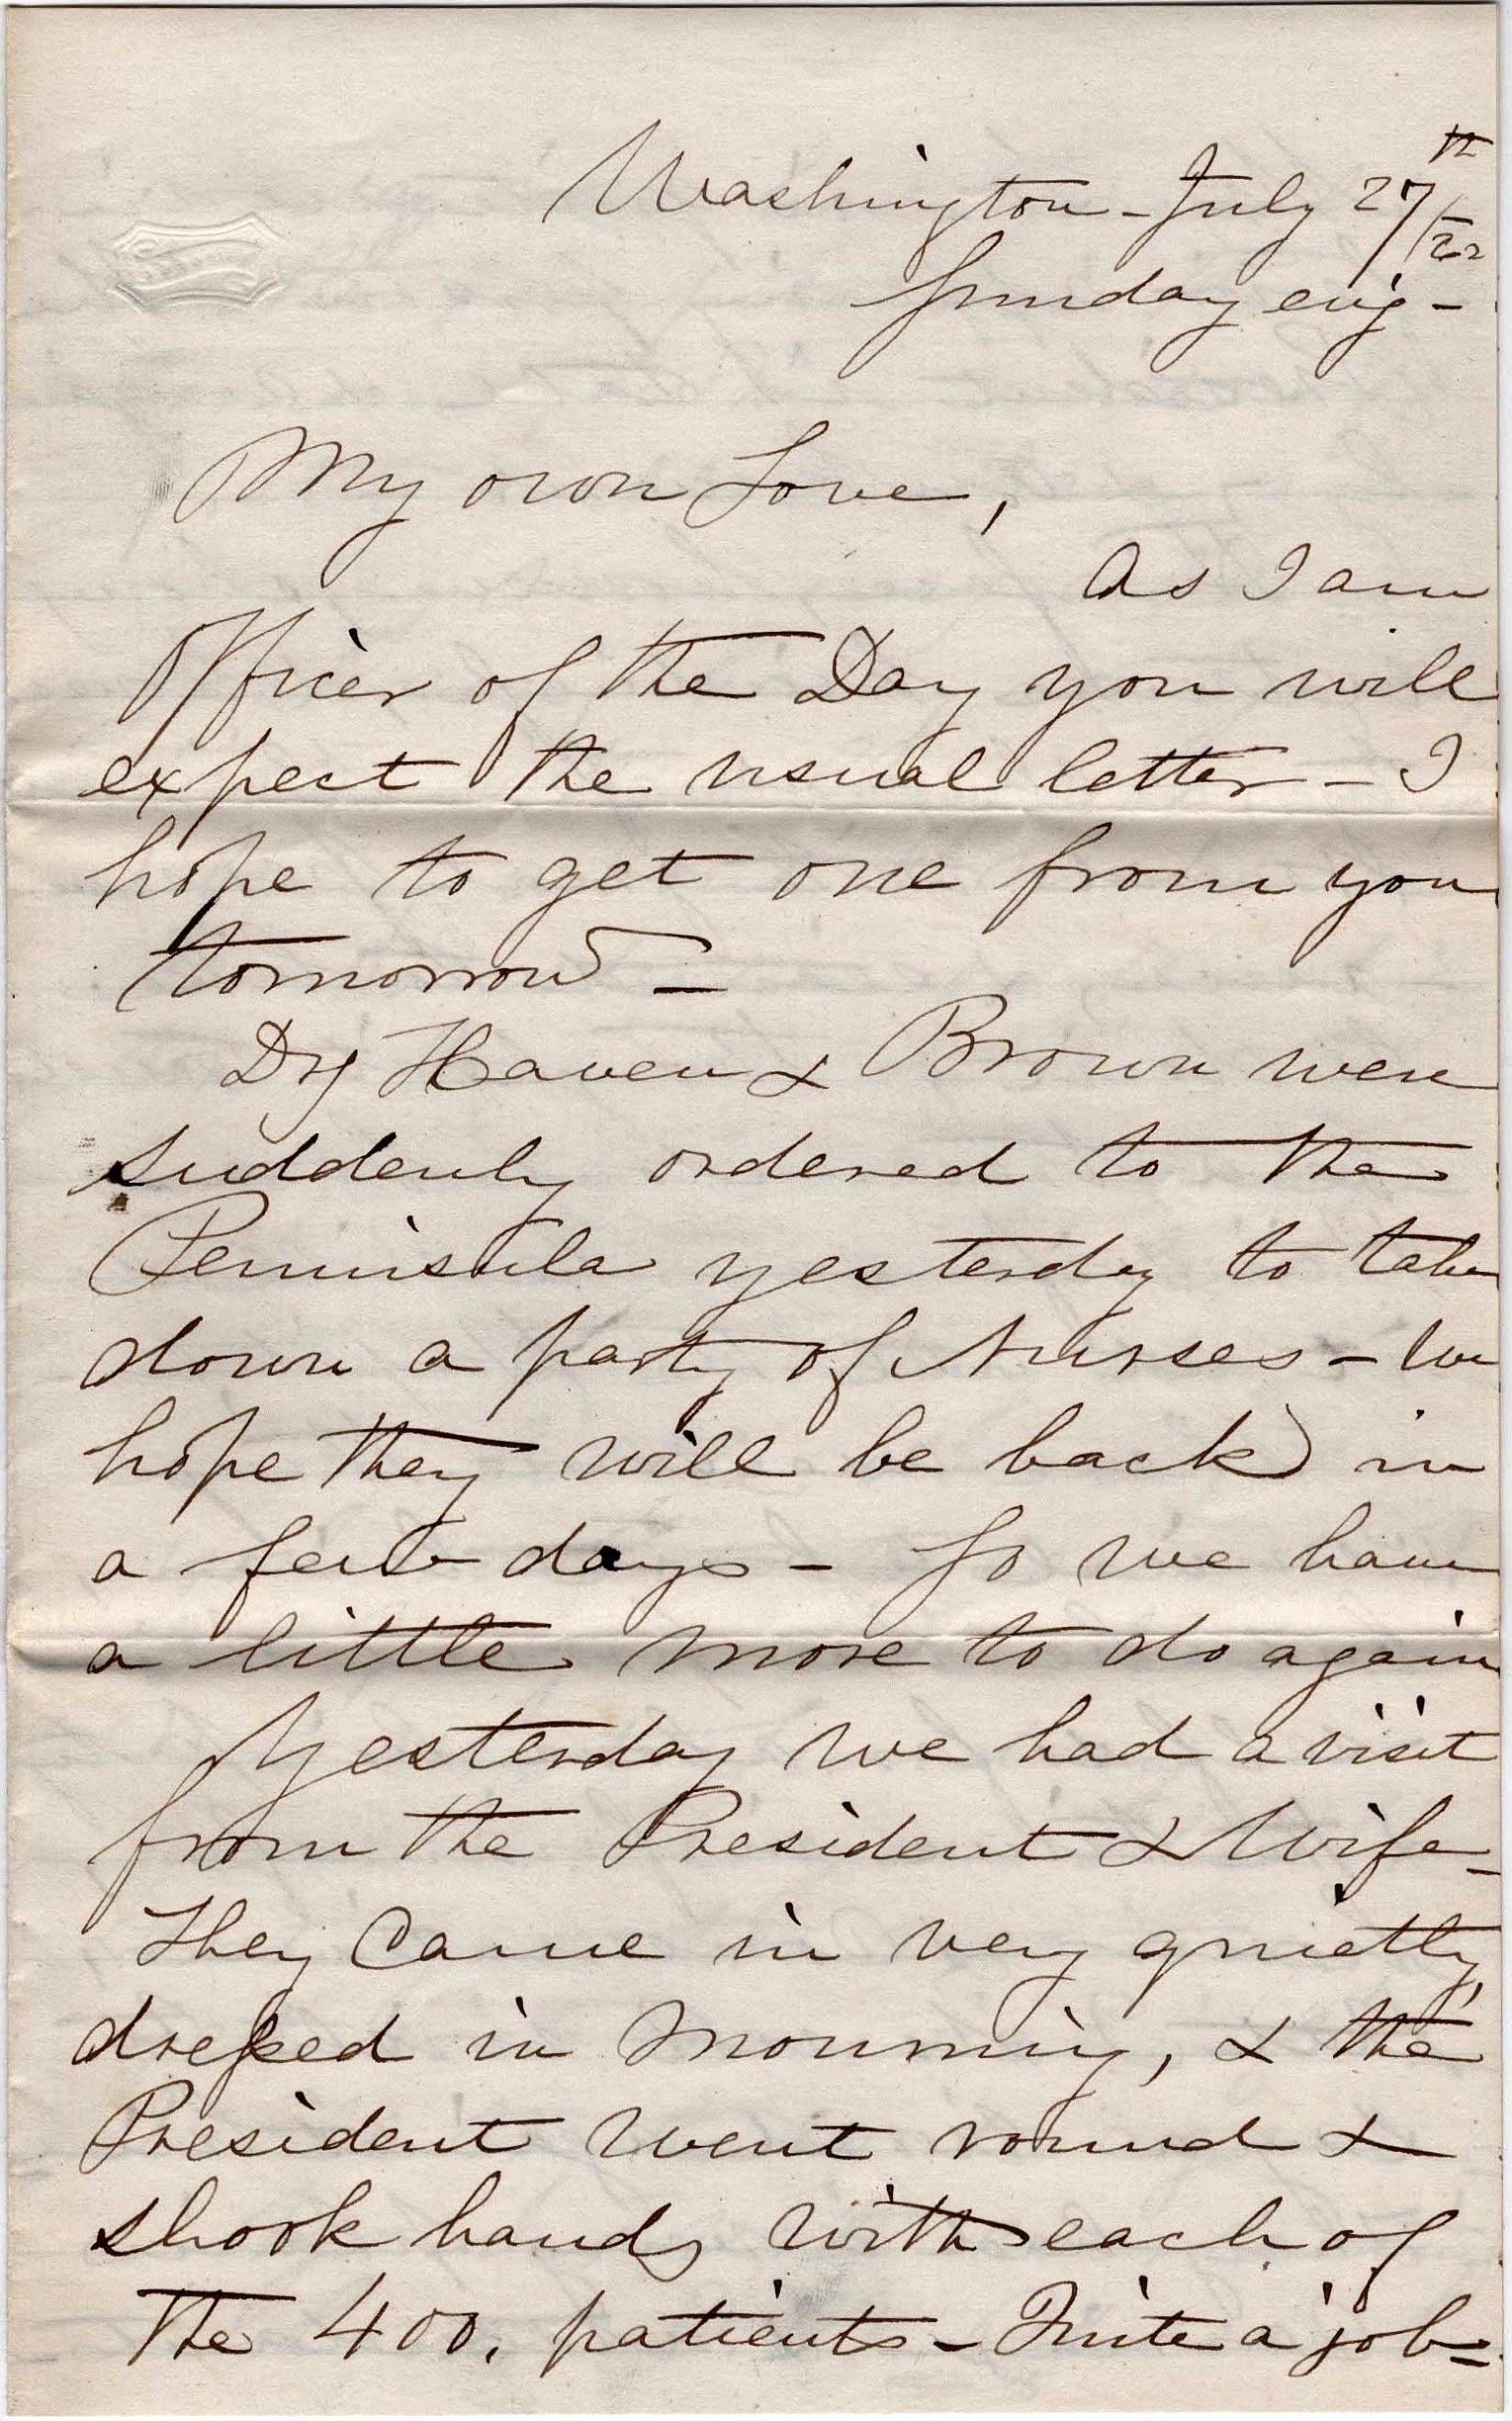 Washington - July 27th/22
Sunday evg -
My own Love,
As I am
Officer of the Day you will
expect the usual letter - I
hope to get one from you
tomorrow -
Drs Haven & Brown were
suddenly ordered to the
Peninsula yesterday to take
down a party of Nurses - we
hope they will be back in
a few days - So we have
a little more to do again
Yesterday we had a visit
from the President & Wife -
They Came in very quietly,
dressed in Mourning, & the
President went round &
shook hands with each of
the 400. patients - Quite a job -